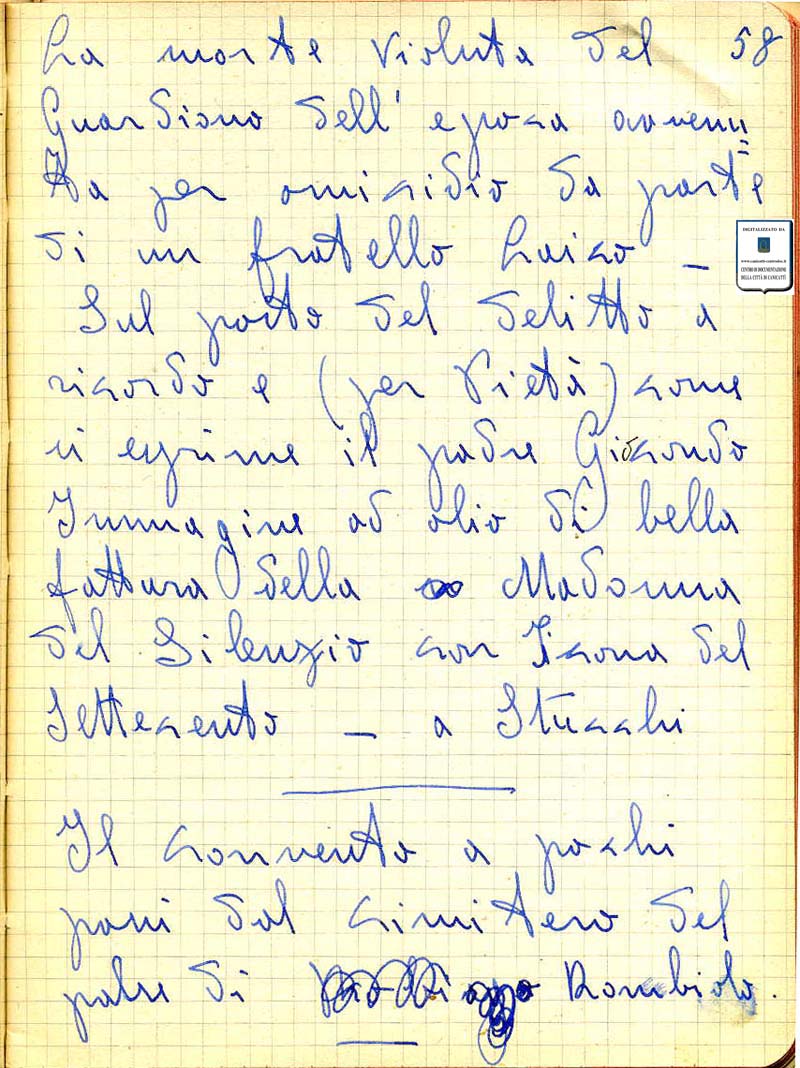 La morte violenta del 58
Guardiano dell' epoca avvenu=
ta per omicidio da parte
di un fratello Laico –
Sul posto del delitto a
ricordo e (per Pietà) come
si esprime il padre Giocondo
Immagine ad olio di bella
fattura della Madonna
del Silenzio con Icona del
Settecento – a Stucchi
Il convento a pochi
passi dal cimitero del
paese di Rombiolo.
DIGITALIZZATO DA
www.canicatti-centrodoc.it
CENTRO DI DOCUMENTAZIONE
DELLA CITTÀ DI CANICATTÌ